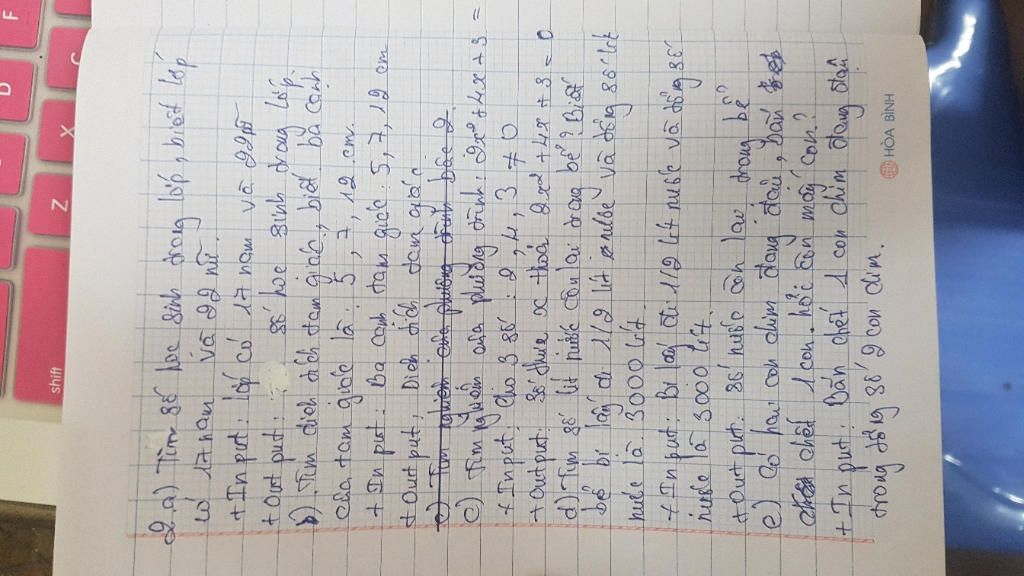 2.a) Tìm số học sinh trong lớp, biết lớp
có 17 nam và 22 nữ.
+ Input: lớp có 17 nam và 22
+ Output: số học sinh trong lớp.
b) Tìm diện tích tam giác, biết ba cạnh
của tam giác là: 5, 7, 12 cm.
+ Input: Ba cạnh tam giác: 5, 7, 12 cm
+ Output: Diện tích tam giác
c) Tìm nghiệm của phương trình bậc 2
c) Tìm nghiệm của phương trình: 2x² + 4x + 3 =
+ Input: Cho 3 số: 2, 4, 3 ≠ 0
+ Output: Số thực x thoả 2x² + 4x + 3 = 0
d) Tìm số lít nước còn lại trong bể? Biết
bể bị lấy đi 1/2 lít nước và tổng số lít
nước là 3000 lít.
+ Input: Bị lấy đi 1/2 lít nước và tổng số
nước là 3000 lít.
+ Output: Số nước còn lại trong bể
e) Có hai con chim đang đậu, bắn
chết 1 con, hỏi còn mấy con?
+ Input: Bắn chết 1 con chim đang đậu
trong tổng số 2 con chim.
HÒA BÌNH
shift
Z
X
D
F